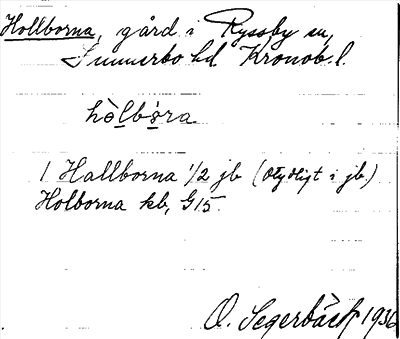 Hollborna, gård i Ryssby sn,
Sunnerbo hd Kronob. l.
hòlbòra
1 Hallborna 1/2 jb (Otydligt i jb.)
Holborna kb, G15.
O. Segerbäck 1936